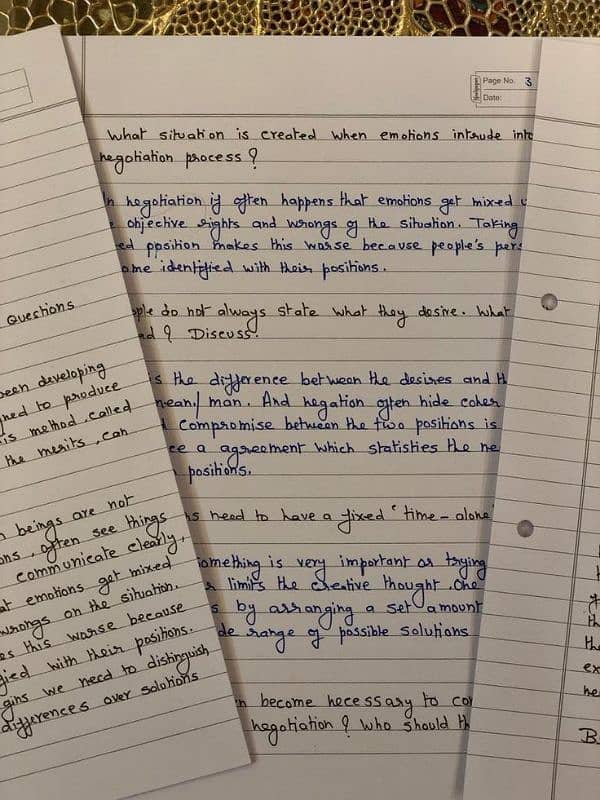 Page No. 3
Date:
What situation is created when emotions intrude into
negotiation process?
negotiation if often happens that emotions get mixed
objective rights and wrongs of the situation. Taking
ppsition makes this worse because people's
identified with their positions.
do not always state what they desire. What
? Discuss.
is the difference between the desires and
mean/ man. And negation often hide
Compromise between the two positions is
a agreement which statisties the
positions.
need to have a fixed "time - alone
something is very important or trying
limits the creative thought. One
by arranging a set amount
range of possible solutions
become necessary to
negotiation? Who should
Questions
been developing
to produce
method, called
the merits, can
beings are not
often see things
communicate clearly,
emotions get mixed
wrongs on the situation.
this worse because
with their positions.
we need to distinguish
differences over solutions
B